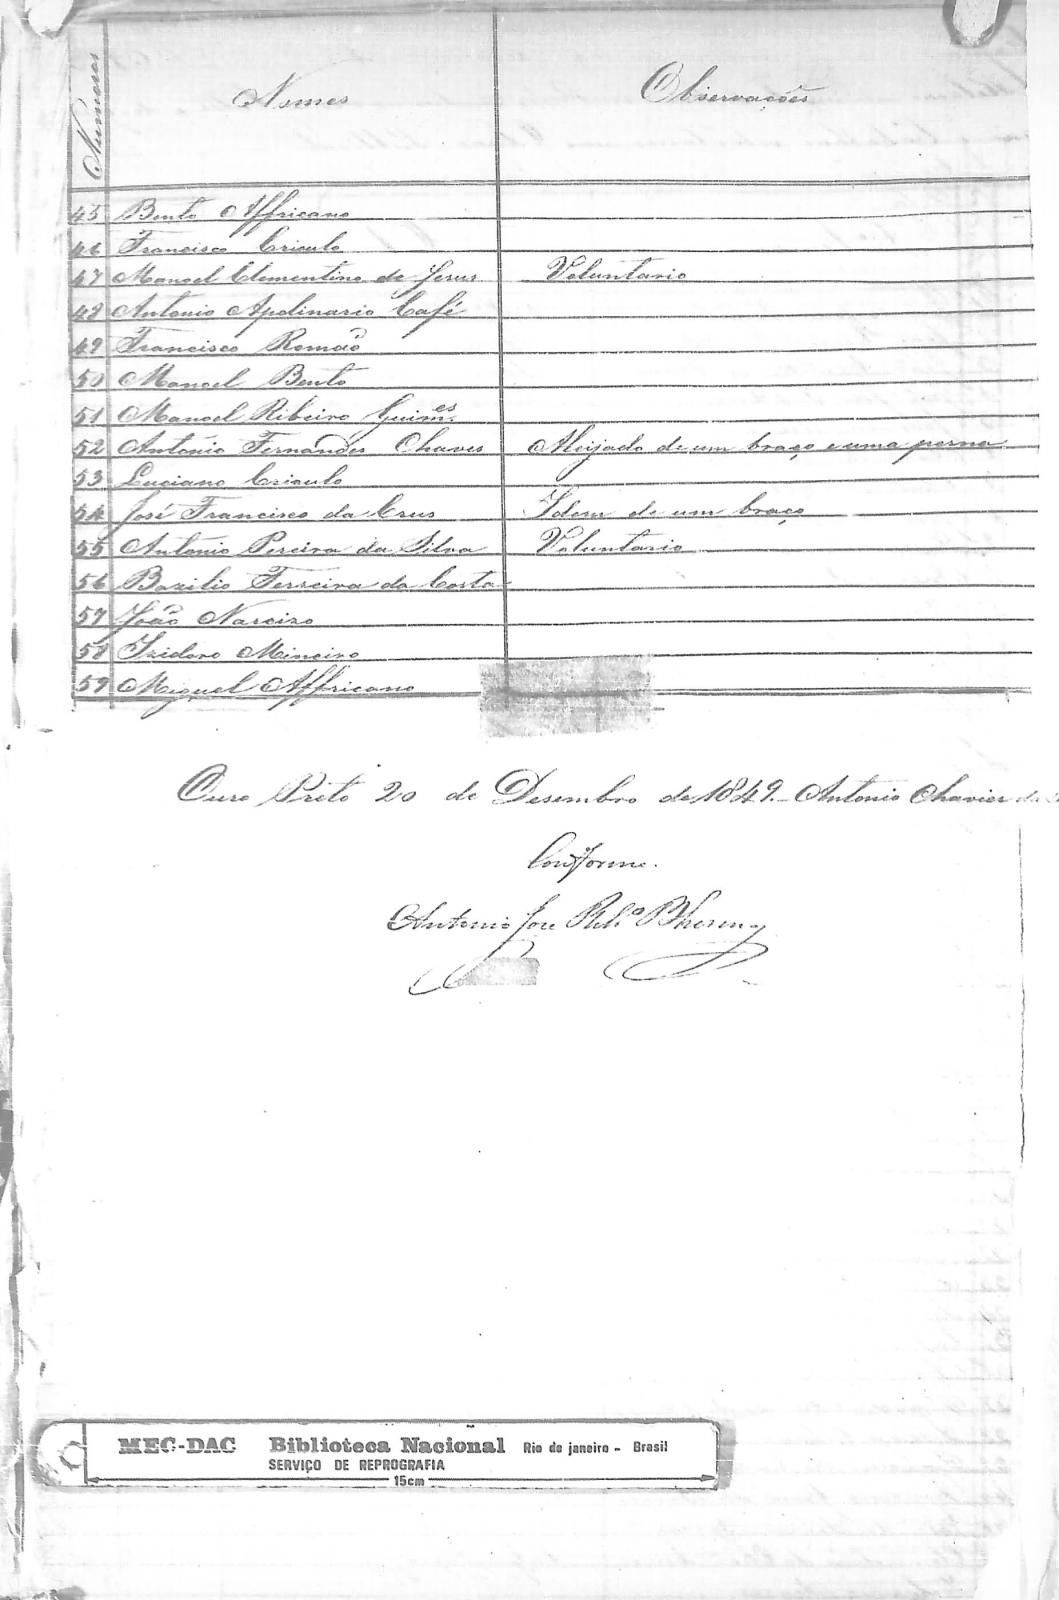 Numeros Nomes Observações
45 Bento Affricano
46 Francisco Crioulo
47 Manoel Clementino de Jesus Voluntario
48 Antonio Apolinario Café
49 Francisco Romão
50 Manoel Bento
51 Manoel Ribeiro Guimes
52 Antonio Fernandes Chaves Aleijado de um braço e uma perna
53 Luciano Crioulo
54 José Francisco da Crus Idem de um braço
55 Antonio Pereira da Silva Voluntario
56 Bazilio Ferreira da Costa
57 João Narcizo
58 Izidoro Mineiro
59 Miguel Affricano
Ouro Preto 20 de Desembro de 1849. Antonio Chavier da
Conforme.
Antonio Jose Ribo Bhering
MEC-DAC Biblioteca Nacional Rio de janeiro - Brasil
SERVIÇO DE REPROGRAFIA
15cm